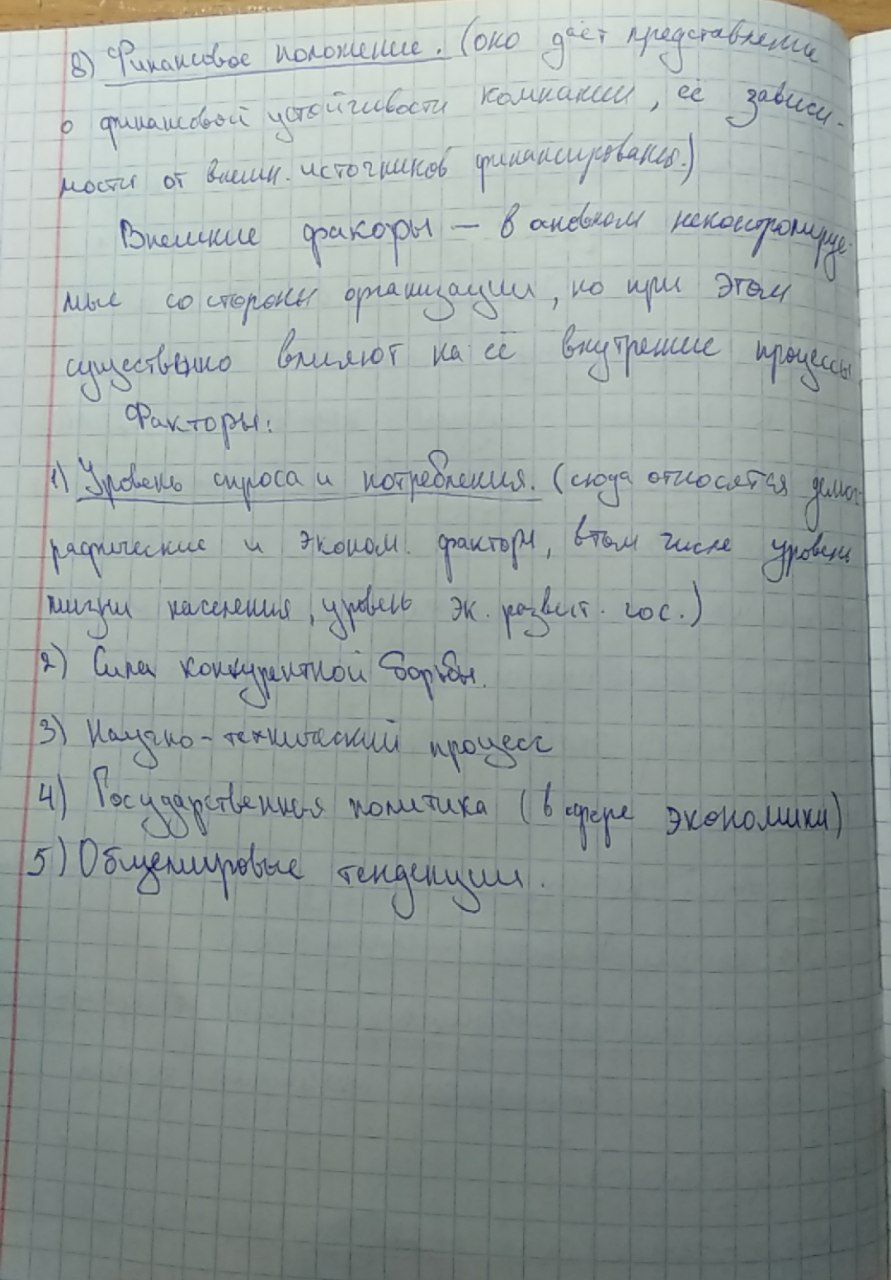 8) Финансовое положение. (оно даёт представление
о финансовой устойчивости компании, её зависи-
мости от внешн. источников финансирования.)
Внешние факоры – в основном неконтролируе-
мые со стороны организации, но при этом
существенно влияют на её внутренние процессы
Факторы:
1) Уровень спроса и потребления. (сюда относятся демог-
рафические и эконом. факторы, в том числе уровень
жизни населения, уровень эк. развит. гос.)
2) Сила конкурентной борьбы.
3) Научно-технический процесс
4) Государственная политика (в сфере экономики)
5) Общемировые тенденции.